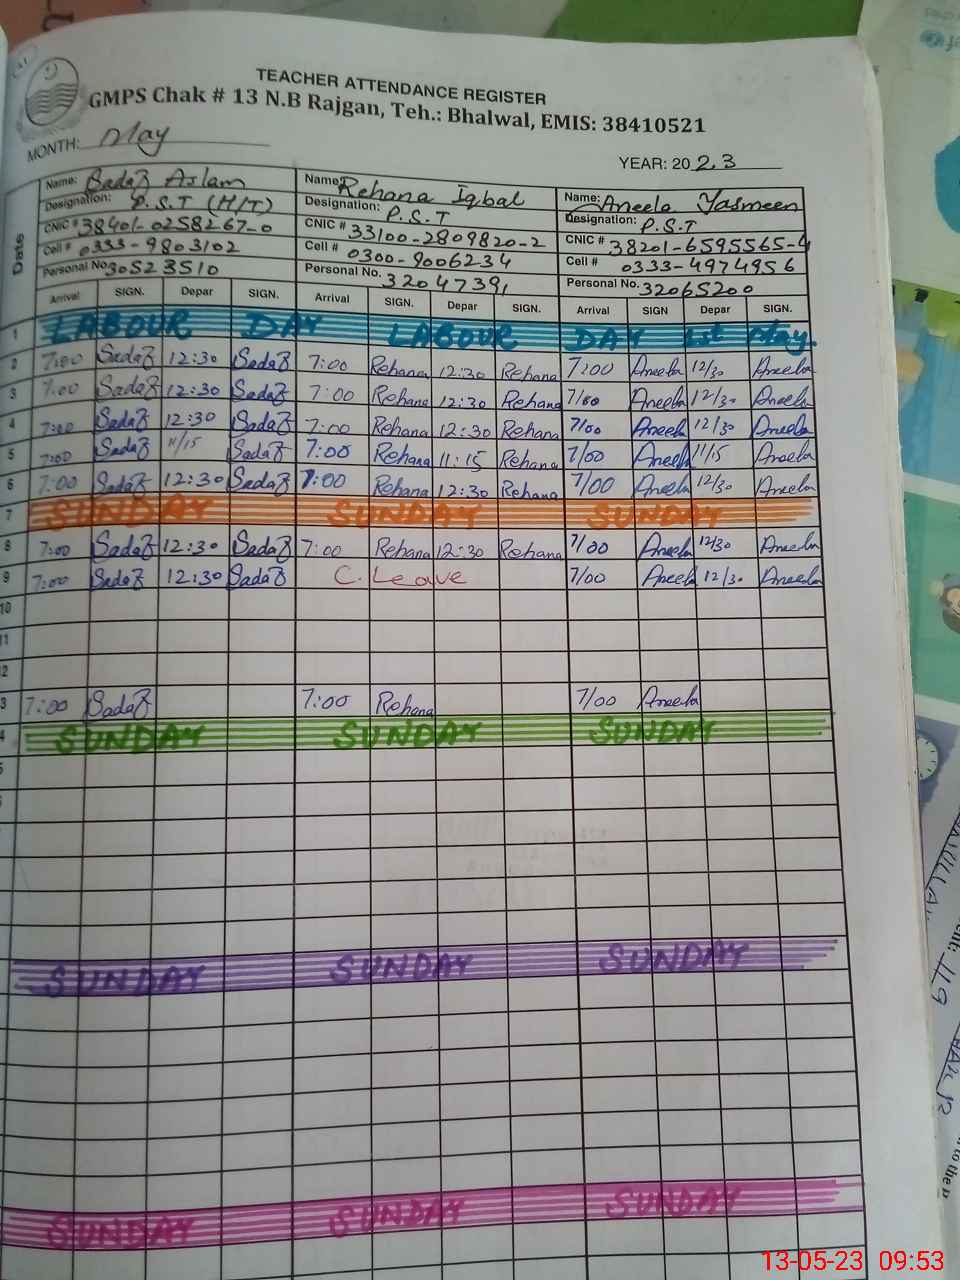 TEACHER ATTENDANCE REGISTER
GMPS Chak # 13 N.B Rajgan, Teh.: Bhalwal, EMIS: 38410521
MONTH: May YEAR: 2023
Name: Sadaf Aslam Name: Rehana Iqbal Name: Aneela Yasmeen
Designation: P.S.T (H/T) Designation: P.S.T Designation: P.S.T
CNIC # 38401-0258267-0 CNIC # 33100-2809820-2 CNIC # 38201-6595565-4
Cell # 0333-9803102 Cell # 0300-9006234 Cell # 0333-4974956
Personal No. 30523510 Personal No. 32047391 Personal No. 32065200
Date Arrival SIGN. Depar SIGN. Arrival SIGN. Depar SIGN. Arrival SIGN Depar SIGN.
1 LABOUR DAY LABOUR DAY 1st May.
2 7:00 Sadaf 12:30 Sadaf 7:00 Rehana 12:30 Rehana 7:00 Aneela 12/30 Aneela
3 7:00 Sadaf 12:30 Sadaf 7:00 Rehana 12:30 Rehana 7/00 Aneela 12/30 Aneela
4 7:00 Sadaf 12:30 Sadaf 7:00 Rehana 12:30 Rehana 7/00 Aneela 12/30 Aneela
5 7:00 Sadaf 11/15 Sadaf 7:00 Rehana 11:15 Rehana 7/00 Aneela 11/15 Aneela
6 7:00 Sadaf 12:30 Sadaf 7:00 Rehana 12:30 Rehana 7/00 Aneela 12/30 Aneela
7 SUNDAY SUNDAY SUNDAY
8 7:00 Sadaf 12:30 Sadaf 7:00 Rehana 12:30 Rehana 7/00 Aneela 12/30 Aneela
9 7:00 Sadaf 12:30 Sadaf C. Leave 7/00 Aneela 12/30 Aneela
10
11
2
3 7:00 Sadaf 7:00 Rehana 7/00 Aneela
4 SUNDAY SUNDAY SUNDAY
SUNDAY SUNDAY SUNDAY
SUNDAY SUNDAY SUNDAY
13-05-23 09:53